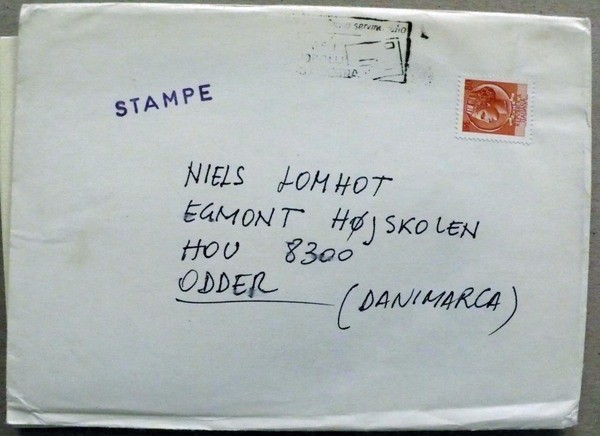 STAMPE
NIELS LOMHOT
EGMONT HØJSKOLEN
HOU 8300
ODDER
(DANIMARCA)